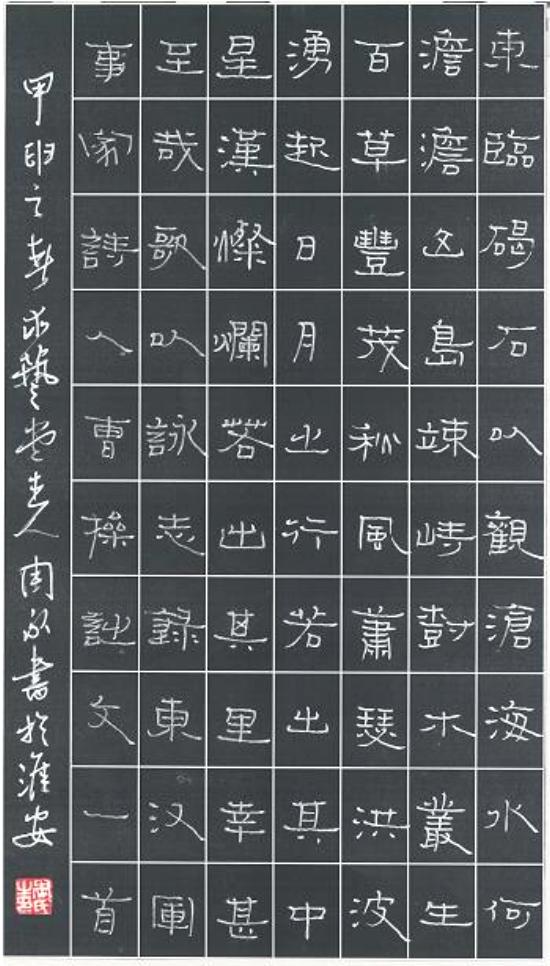 東臨碣石以觀滄海水何
澹澹山島竦峙樹木叢生
百草豐茂秋風蕭瑟洪波
湧起日月之行若出其中
星漢燦爛若出其里幸甚
至哉歌以詠志錄東汉軍
事家詩人曹操詩文一首
甲申之春求藝堂主人周書於淮安